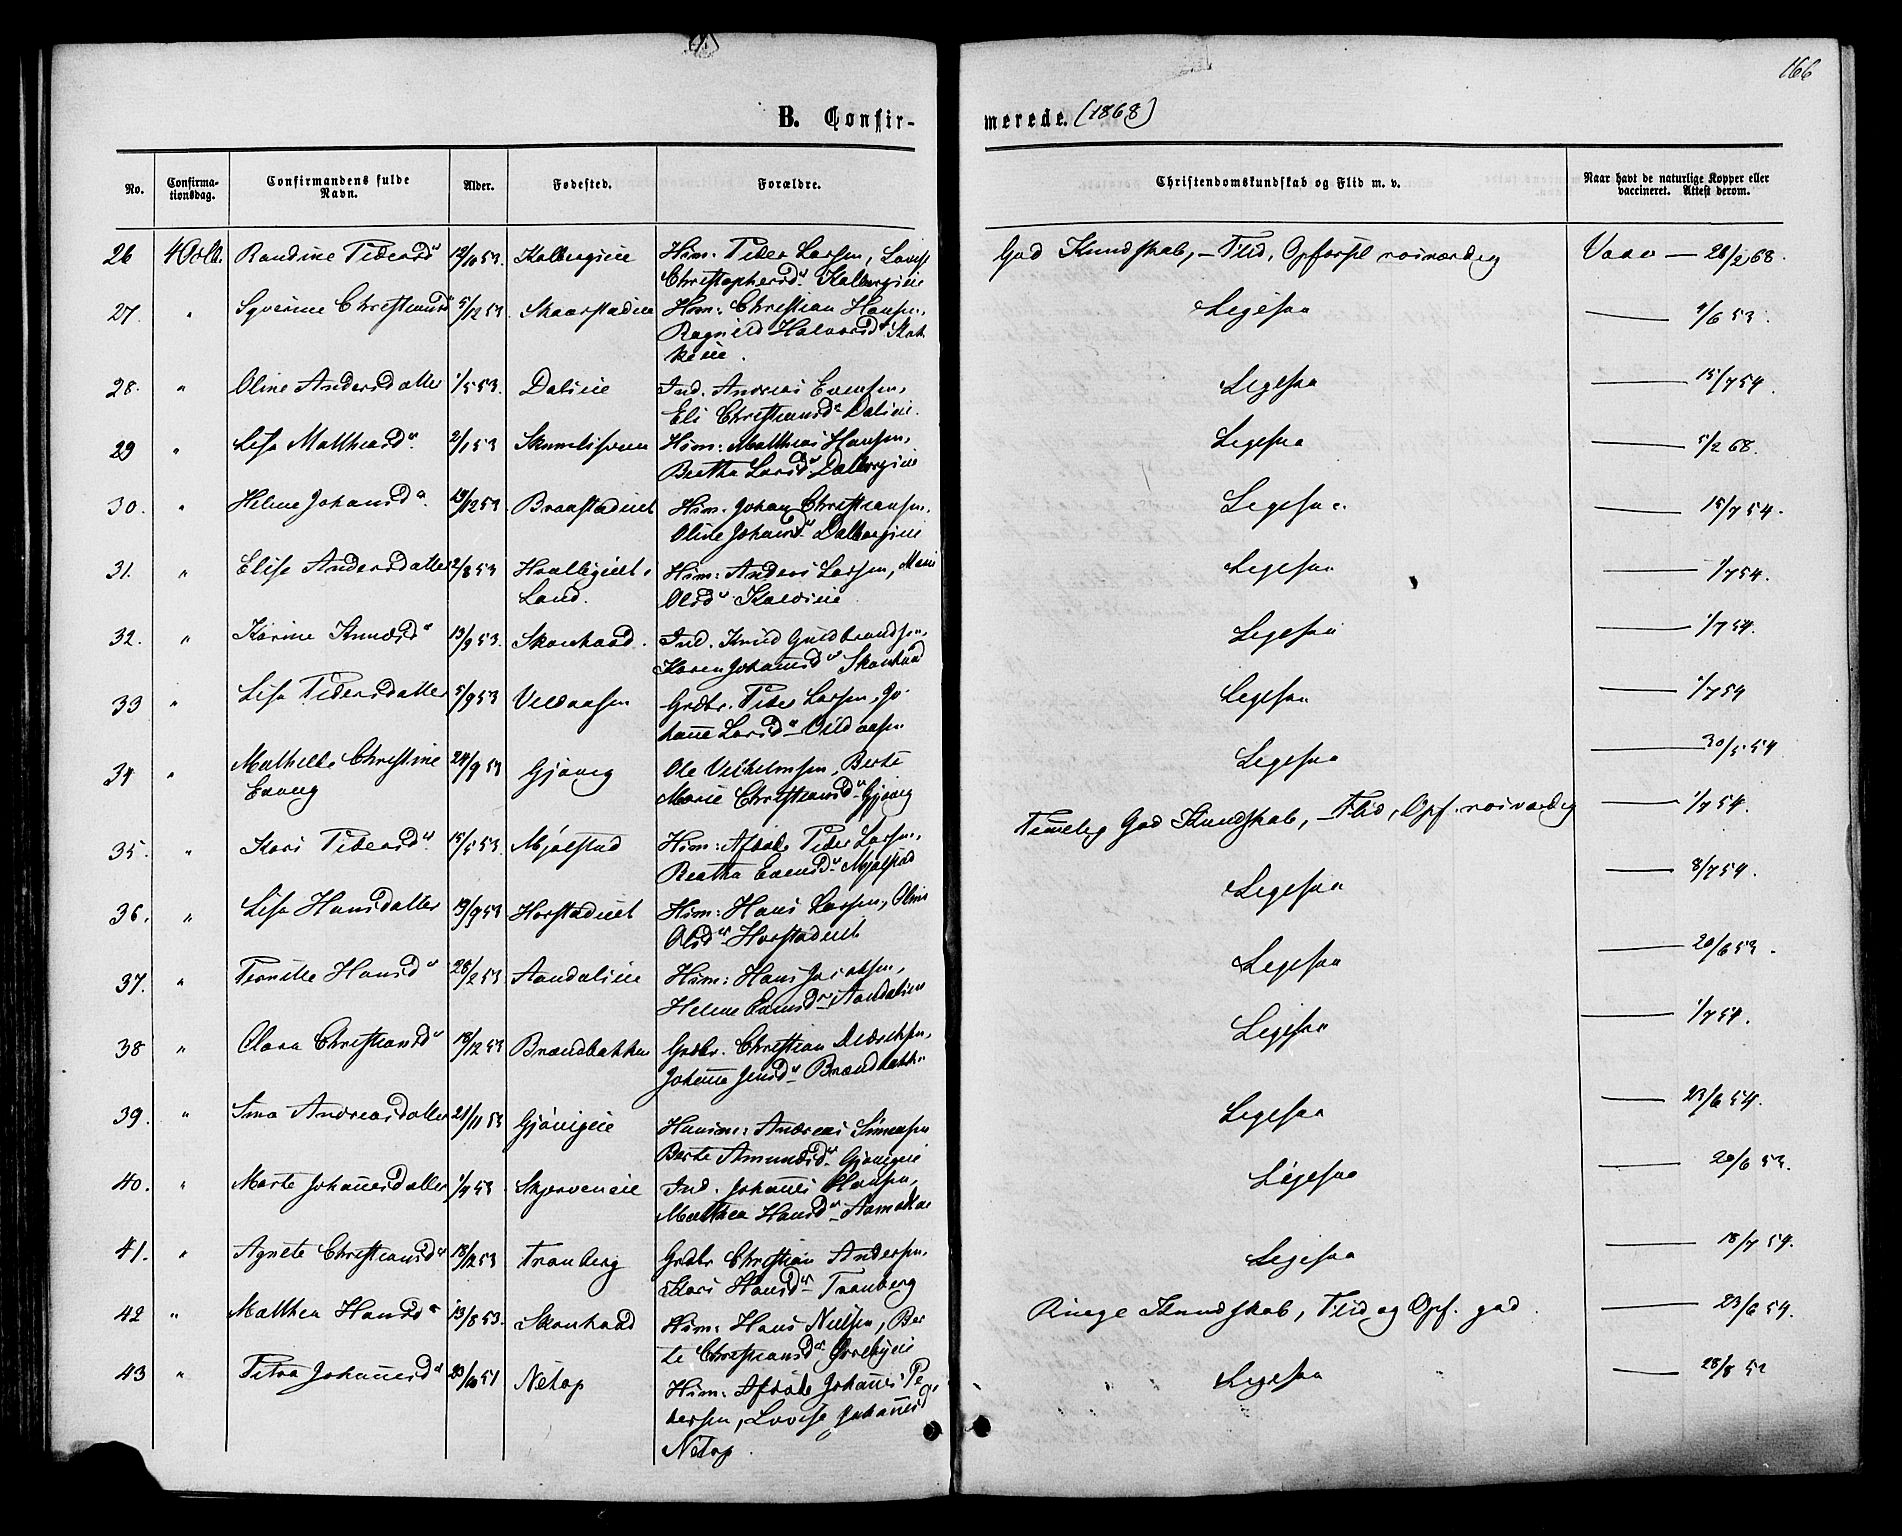 166
B. Confirmerede. (1868)
No. Confirmationsdag. Confirmandens fulde Navn. Alder. Fødested. Forældre. Christendomskundskab og Flid m. v. Naar havt de naturlige Kopper eller vaccineret. Attest derom.
26 4 Octb. Randine Pedersd. 12/10 53. Kalbergseie Hsm: Peder Larsen, Lovise
Christophersd. Kalbergseie God Kundskab, – Flid, Opførsel roisværdig Vacc – 28/2 68.
27. " Syverine Christiansd. 5/12 53 Skaarstadeie Hsm: Christian Hansen,
Ragnild Halvorsd. Ligesaa — 9/6 53.
28. " Oline Andersdatter 1/5 53. Dalseie Ind. Andreas Evensen,
Eli Christiansd. Dalseie. Ligesaa — 15/7 54.
29 " Lisa Mathiasd. 2/1 53 Hsm: Matthias Hansen,
Berthe Larsd. Dalborgseie Ligesaa — 5/2 68.
30. " Helene Johansd. 19/12 53 Braastadeiet Hsm. Johan Christiansen,
Oline Johansd. Dalborgseie Ligesaa — 15/7 54.
31. " Elise Andersdatter 2/8 53
Land. Hsm: Anders Larsen, Marie
Olsd. Ligesaa — 1/7 54.
32. " Karine Knudsd. 13/9 53. Skonhaad. Ind. Knud Guldbrandsen,
Karen Johannesd. Skonhaad Ligesaa — 1/7 54.
33 " Lisa Pedersdatter 5/9 53 Veldaasen Grdbr. Peder Larsen, Jo-
hanne Larsd. – Veldaasen Ligesaa — 1/7 54
34 " Mathilde Christine
Enaug 24/9 53 Gjøvig Ole Vilhelmsen, Berte
Marie Christiansd. – Gjøvig Ligesaa — 30/5 54
35. " Kari Pedersd. 15/5 53. Mjølstad Hsm: Afdøde Peder Larsen,
Beatha Evensd. – Mjølstad Temmelig God Kundskab, – Flid, Opf. roisværdig — 1/7 54.
36. " Lisa Hansdatter 19/9 53 Horstadeiet Hsm: Hans Larsen, Oline
Olsd. – Horstadeiet Ligesaa — 8/7 54.
37. " Pernille Hansd. 28/2 53 Aandalseie Hsm: Hans Jacobsen,
Helene Evensd. – Aandalseie Ligesaa — 20/6 53.
38 " Clara Christiansd. 18/12 53 Brændbakken Grdbr. Christian Didrichsen,
Johanne Jensd. – Brændbakken Ligesaa — 1/7 54.
39. " Andreasdatter 21/11 53 Gjøvigeie Huusm: Andreas Simensen
Berte Amundsd. – Gjøvigeie Ligesaa — 23/6 54.
40. " Marte Johannesdatter 1/9 53 Skjerveneie Ind. Johannes Hansen,
Matthea Hansd. – Ligesaa — 20/6 53.
41. " Agnete Christiansd. 18/12 53 Tranberg Grdbr Christian Andersen,
Kari Hansd. – Tranberg Ligesaa — 18/7 54.
42 " Matthea Hansd. 13/8 53. Skonhaad Hsm: Hans Nielsen, Ber-
te Christiansd. Ringe Kundskab, Flid og Opf. god. — 23/6 54.
43 " Petra Johannesd. 20/10 51 Netop Hsm: Afdøde Johannes Pe-
dersen, Lovise Johannesd.
Netop. Ligesaa — 28/8 52